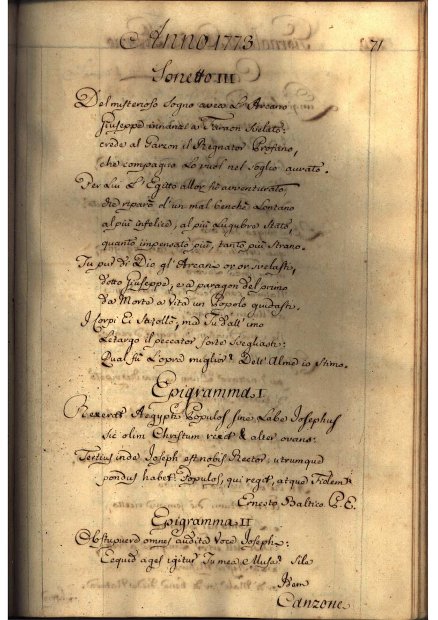 Anno 1773
71
Sonetto III
Del misterioso Sogno avea L'Arcano
Giuseppe innanzi a Faraon svelato:
crede al Garzon il Regnator Profano,
che compagno Lo vuol nel soglio aurato.
Per Lui L'Egitto allor fù avventurato,
che riparò d'un mal benchè Lontano
al più infelice, al più Lugubre Stato,
quanto impensato più, tanto più strano.
Tu pur di Dio gl'Arcani or or svelasti,
dotto Giuseppe, e a paragon del primo
da Morte a Vita un Popolo guidasti.
I Corpi Ei Satollò, ma Tu dall'imo
Letargo il peccator forte svegliasti:
Qual fù L'opra miglior? Dell'Alme io stimo.
Epigramma I
Aegypti Populos sine Labe Josephus
Sic olim Christum rexit & alter ovans.
Tertius inde Joseph est nobis Rector; utrumque
pondus habet Populos, qui regit, atque Fidem.
Ernesto Baltico P. E.
Epigramma II
Obstupuere omnes audita voce Joseph:
Ecquid ages igitur Tu mea Musa? Sile
Canzone